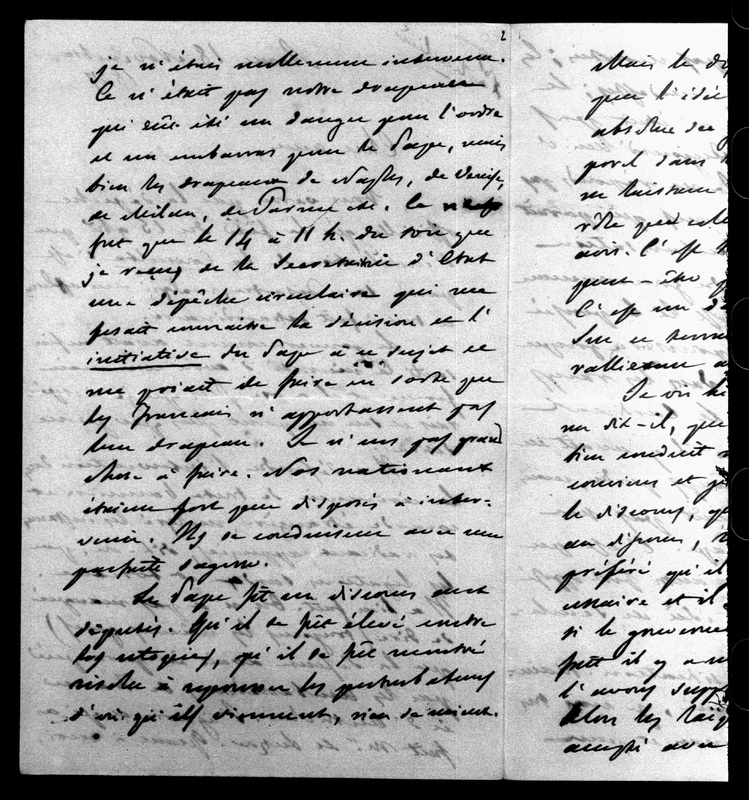 2
je n'étais nullement intervenu.
Ce n'était pas notre drapeau
qui eût été un danger pour l'ordre
et un embarras pour le Pape, mais
bien les drapeaux de Naples, de Venise,
de Milan, de Parme etc. Ce
fut que le 14 à 11 h. du soir que
je reçus de la Secretairie d'Etat
une dépêche circulaire qui me
fesait connaître la décision et l'
initiative du Pape à ce sujet et
me priait de faire en sorte que
les Français n'apportassent pas
leur drapeau. Je n'eus pas grand
chose à faire. Nos nationaux
étaient fort peu disposés à inter-
venir. Ils se conduisirent avec une
parfaite sagesse.
Le Pape fit un discours aux
députés. Qu'il se fût élevé contre
les utopies, qu'il se fût montré
résolu à réprimer les perturbateurs
d'où qu'ils viennent, rien de mieux.
Mais le
que l'idée
absolue des
pareil dans
ne laissant
rôle que celui
avis. C'est
peut-être
C'est un
Sur ce terrain
rallieront
Je vis
me dit-il, que
bien conduit
convient et
le discours,
au discours,
préféré qu'il
et il
si le gouvernement
il y a
l'avons
Alors les
accepté avec